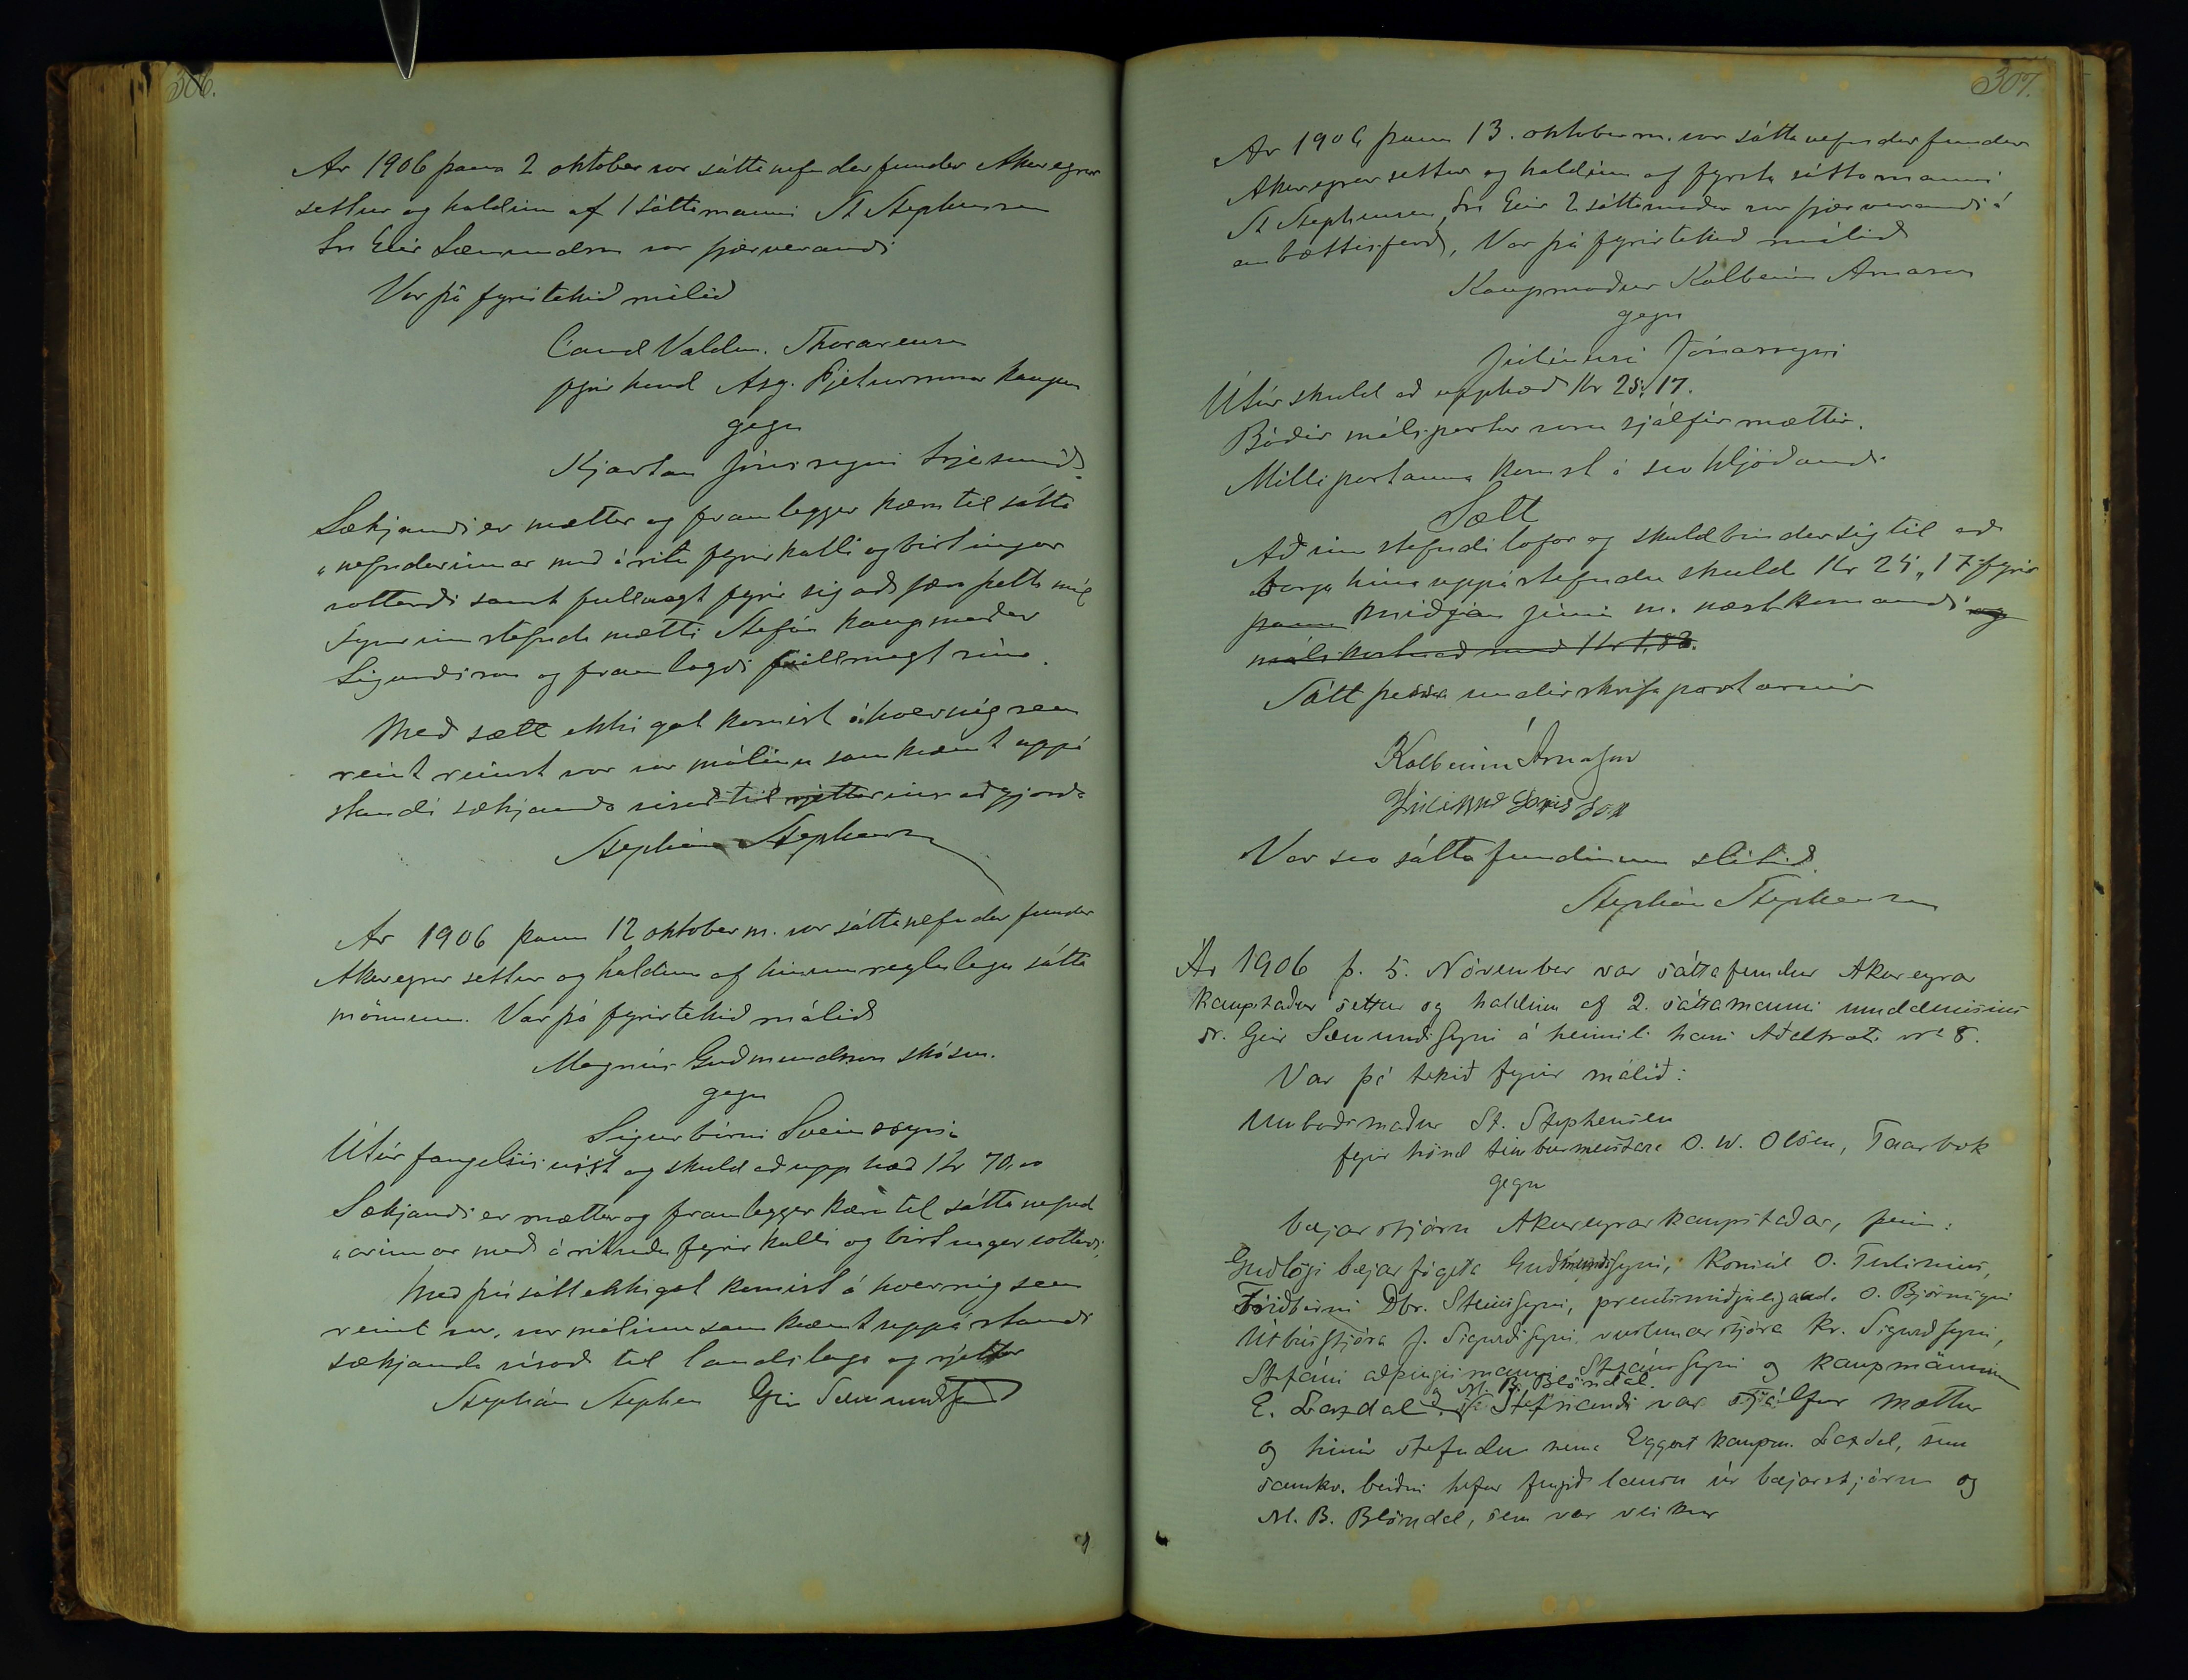 306.
Ar 1906 þann 2 oktober var sáttanefndarfundur Akureyrar
settur og haldinn af 1 sáttamanni St Stephensen
Sra Geir Sæmundsson var fjærverandi
Var þá fyrirtekið málið
Cand Valdm. Thorarensen
fyrir hönd Ásg. Pjeturssonar kaupm
gegn
Kjartan Jónssyni trjesmið.
Sækjandi er mættur og framlegger kæru til sátta
„nefndarinnar með árita fyrirkalli og birtingar
vottorði samt fullmagt fyrir sig að færa þetta mál
Fyrir inn stefnda mætti Stefán kaupmaður
Sigurðsson og framlagði fullmagt sína.
Með sætt ekki gat komist á hvernig sem
reint reinst var var málinu samkvæmt uppá
standi sækjanda vísað til rjettarins aðgjorða
Stephán Stephensen
Ar 1906 þann 12 oktober m. var sáttanefndar fundur
Akureyrar settur og haldinn af hinum reglulegu sátta
mönnum. Var þá fyrirtekið málið
Magnús Guðmundsson skósm.
gegn
Sigurbirni Sveinssyni
Útúr fangelsisvist og skuld að upphæð Kr 70,00
Sækjandi er mættur og framlegger kæru til sáttanefnd
„arinnar með áritnðu fyrirkalli og birtingar vottorði.
Með því sátt ekki gat komist á hvernig sem
reint var, var málinu samkvæmt uppástandi
sækjanda vísað til landslaga og rjettar
Stephán Stephensen Geir Sæmundsson
307.
Ar 1906 þann 13. oktober m. var sáttanefndarfundur
Akureyrar settur og haldinn af fyrsta sáttamanni
St Stephensen, Sra Geir 2 sáttamaður var fjærverandi á
embættisferð, Var þá fyrirtekið málið
Kaupmaður Kolbeinn Arnason
gegn
Júlíusi Jónassyni
Útúr skuld að upphæð Kr 25,17.
Báðir málspartar voru sjálfir mættir.
Milli partanna komst á svo hljóðandi
Sætt
Að inn stefndi lofar og skuldbindur sig til að
borga hina uppástefndu skuld Kr 25„17 fyrir
þann miðjan júní m. næstkomandi og
málskostnað með Kr 1,80.
Sátt þessa undirskrifa partarnir
Kolbeinn Árnason
Júlíus Jónisson
Var svo sáttafundinum slitið.
Stephán Stephensen
Ár 1906 þ. 5. Nóvember var sáttafundur Akureyrar
kaupstaður settur og haldinn af 2. sáttamanni umdæmisins
sr. Geir Sæmundssyni á heimili hans Aðalstræti nr 8.
Var þá tekið fyrir málið:
Umboðsmaður St. Stephensen
fyrir hönd timburmeistara O. W. Olsen, Taarbæk
gegn
bæjarstjórn Akureyrarkaupstaðar, þeim:
Guðlögi bæjarfógeta Guðmundssyni, konsúl O. Tulinius,
Friðbirni Dbr. Steinssyni, prentsmiðjueigand. O. Björnssyni
Útbússtjóra J. Sigurðssyni verslunarstjóra Kr. Sigurðssyni,
Stefáni alþingismanni Stefánssyni og kaupmönnum
E. Laxdal og M. B. Blöndal. Stefnandi var sjálfur mættur
og hinir stefndu nema Eggert kaupm. Laxdal, sem
samkv. beiðni hefur fengið lausn úr bæjarstjórn og
M. B. Blöndal, sem var veikur